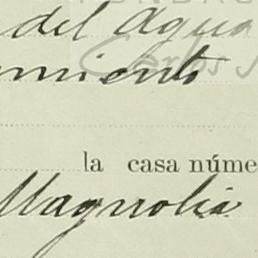 del Agua
miento
la casa núme
Magnolia